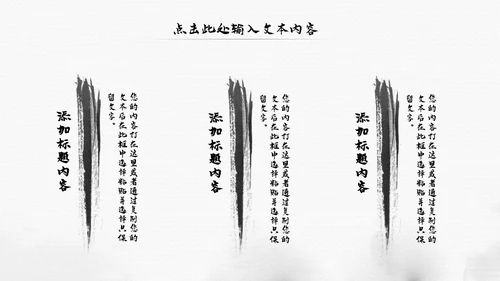 点击此处输入文本内容
添加标题内容
您的内容打在这里或者通过复制您的
文本后在此框中选择粘贴并选择只保
留文字。
添加标题内容
您的内容打在这里或者通过复制您的
文本后在此框中选择粘贴并选择只保
留文字。
添加标题内容
您的内容打在这里或者通过复制您的
文本后在此框中选择粘贴并选择只保
留文字。